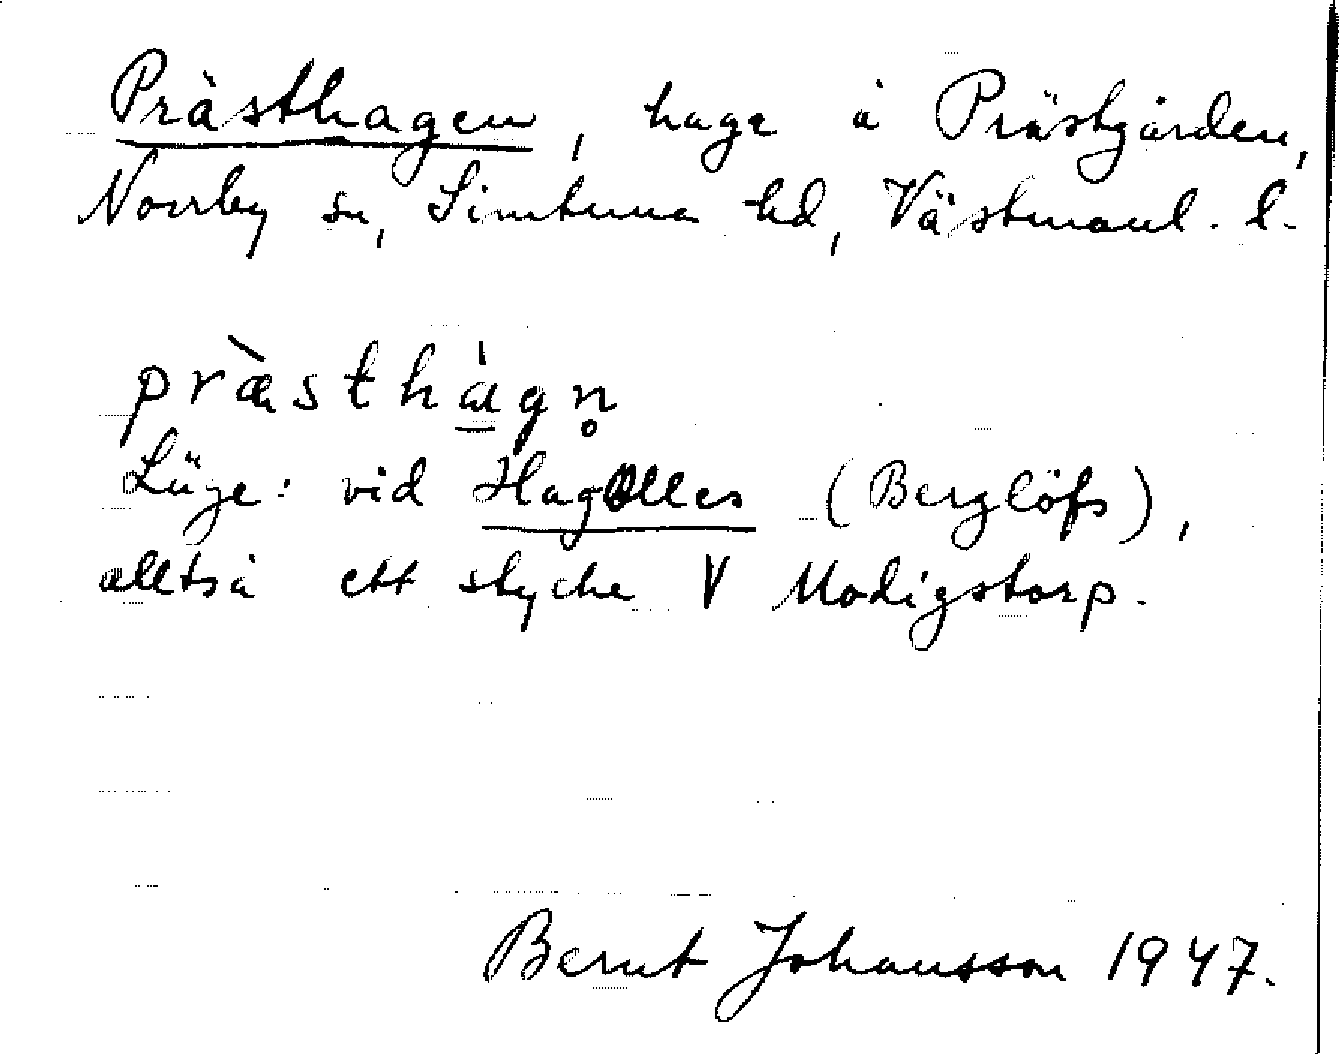 Prästhagen, hage å Prästgården,
Norrby sn, Simtuna hd, Västmanl. l.
præ̀sthágn̥
Läge: vid HagOlles (Berglöfs),
alltså ett stycke V Modigstorp.
Bernt Johansson 1947.